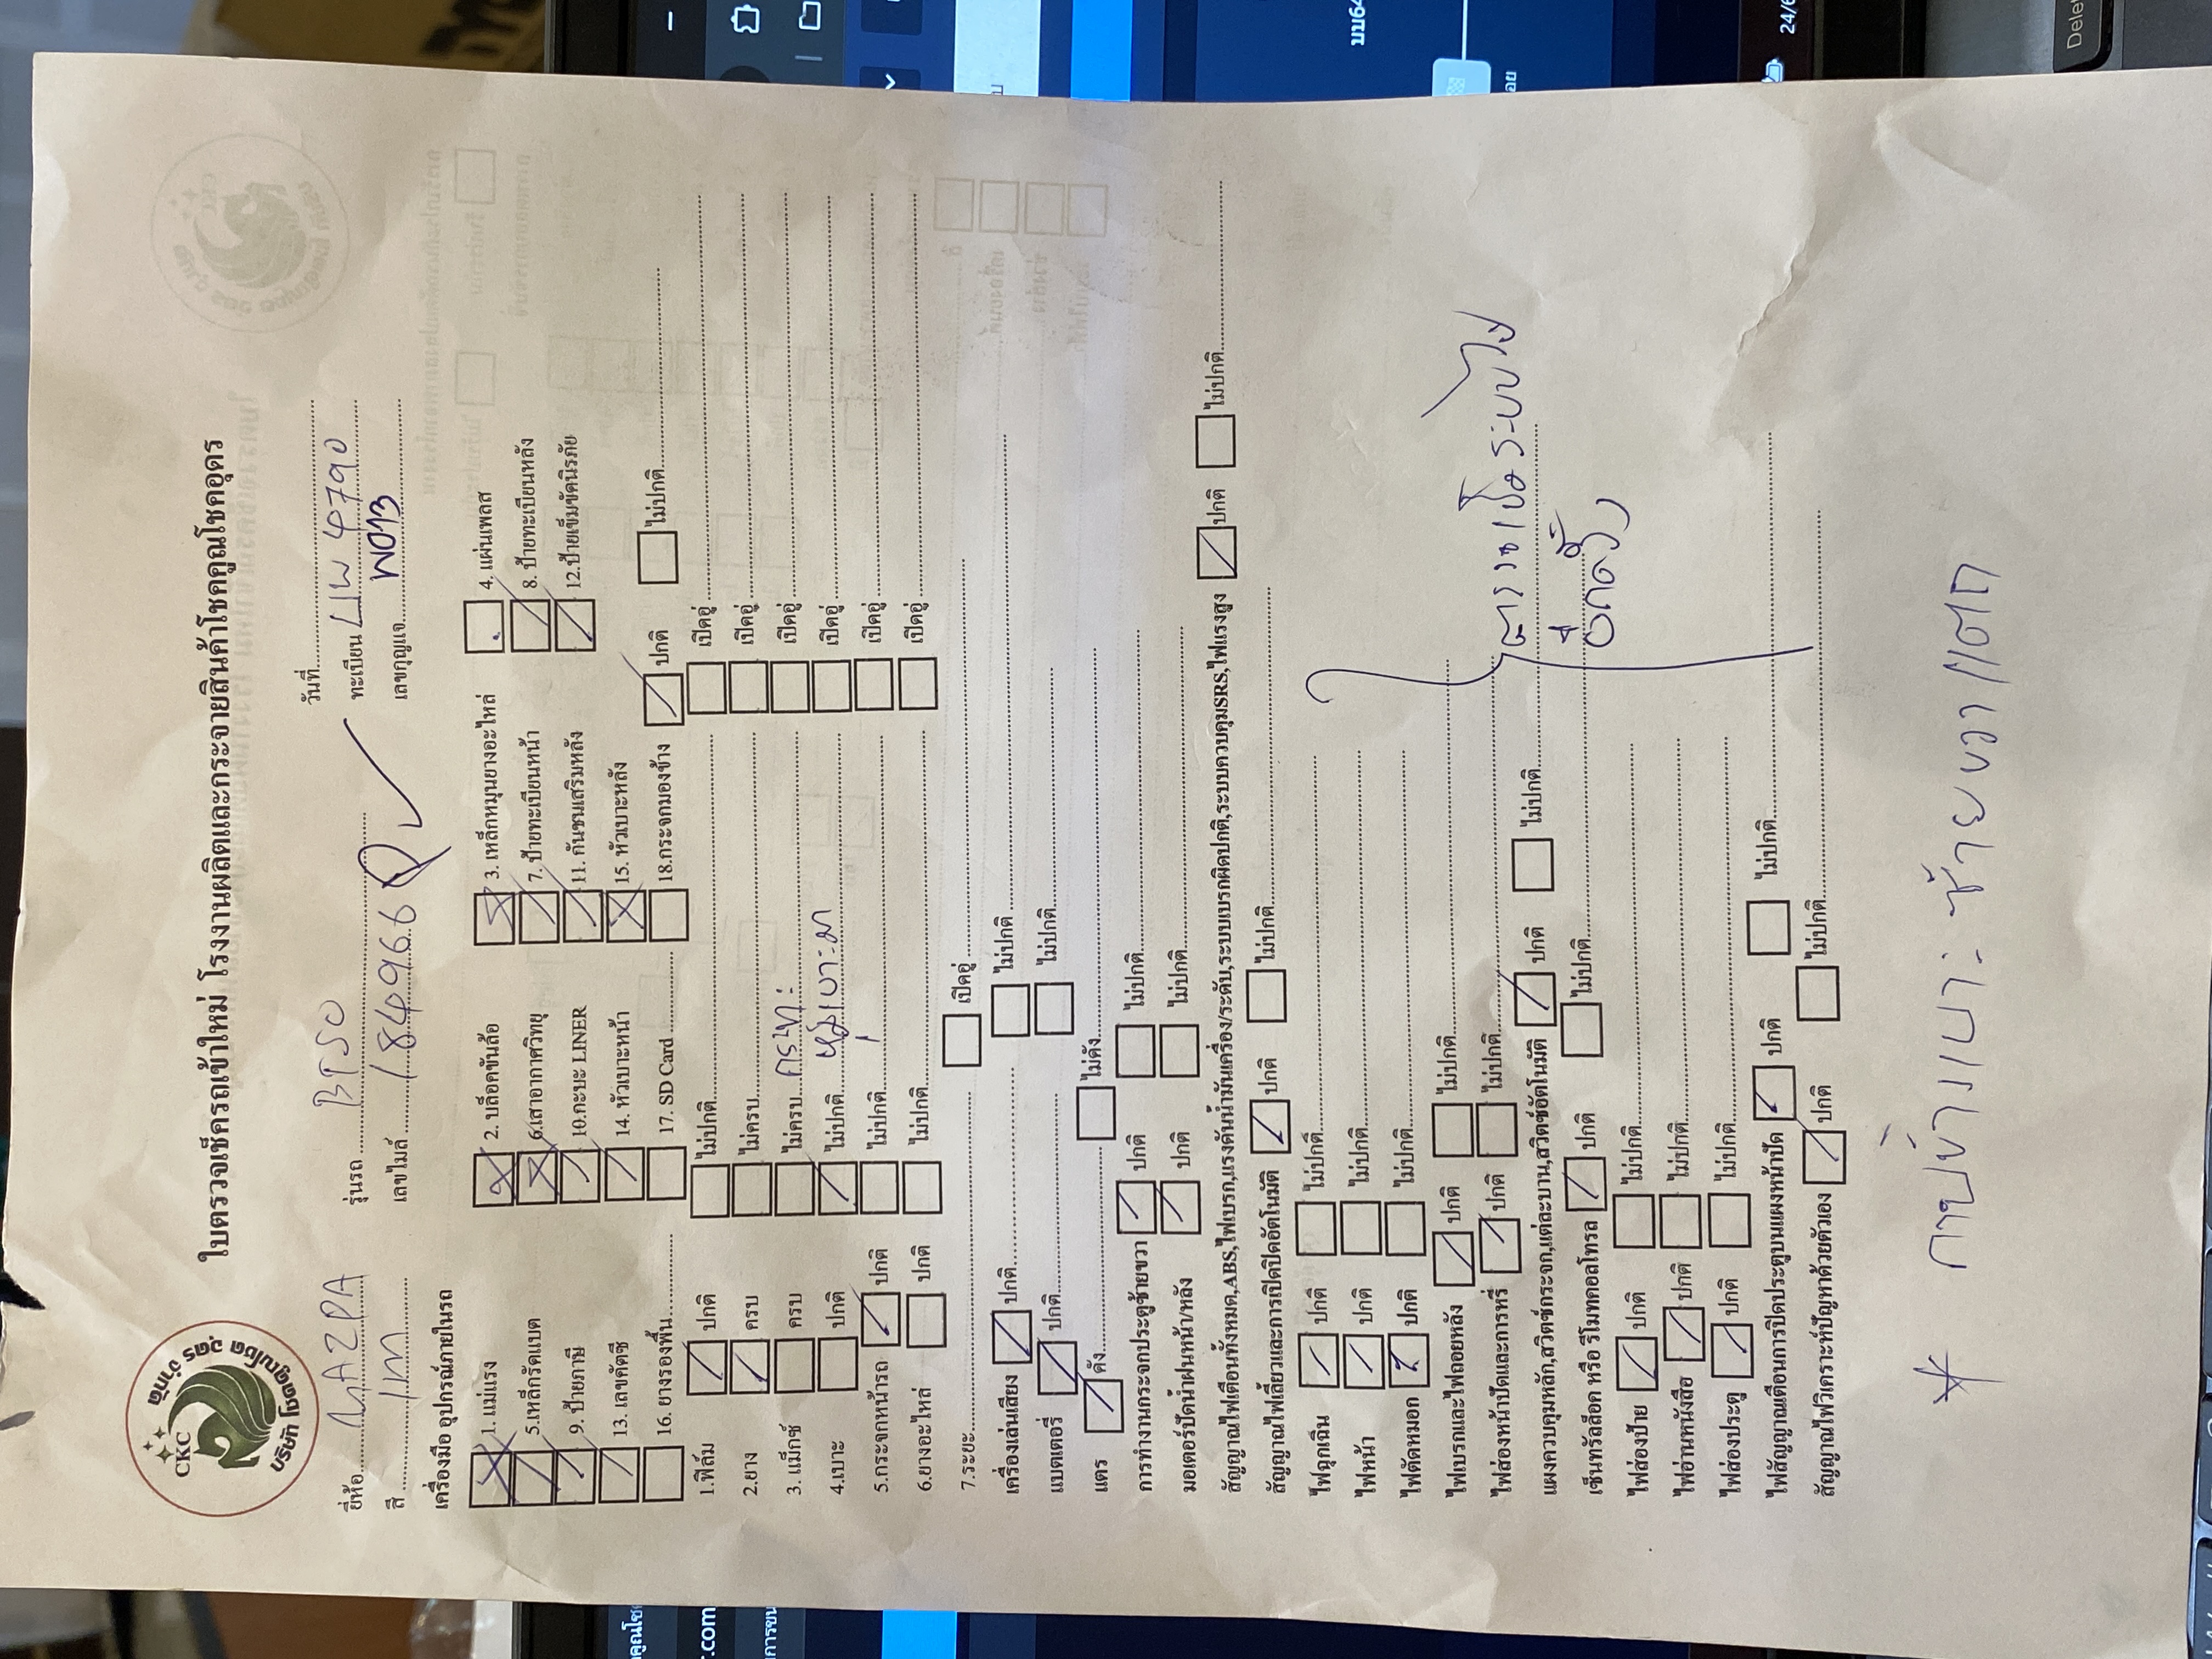 CKC
บริษัท โชคคูณโชค อุดร จำกัด
ใบตรวจเช็ครถเข้าใหม่ โรงงานผลิตและกระจายสินค้าโชคคูณโชคอุดร
วันที่
ยี่ห้อ MAZDA รุ่นรถ BT50 ทะเบียน 4790
สี เทา เลขไมล์ 184966 เลขกุญแจ W073
เครื่องมือ อุปกรณ์ภายในรถ
1. แม่แรง 2. บล็อคขันล้อ 3. เหล็กหมุนยางอะไหล่ 4. แผ่นเพลส
5.เหล็กรัดแบต 6.เสาอากาศวิทยุ 7. ป้ายทะเบียนหน้า 8. ป้ายทะเบียนหลัง
9. ป้ายภาษี 10.กะบะ LINER 11. กันชนเสริมหลัง 12.ป้ายเข็มขัดนิรภัย
13. เลขคัตซี 14. หัวเบาะหน้า 15. หัวเบาะหลัง
16. ยางรองพื้น 17. SD Card 18.กระจกมองข้าง ปกติ ไม่ปกติ
1.ฟิล์ม ปกติ ไม่ปกติ เปิดอู่
2.ยาง ครบ ไม่ครบ เปิดอู่
3. แม็กซ์ ครบ ไม่ครบ กระทะ เปิดอู่
4.เบาะ ปกติ ไม่ปกติ หุ้มเบาะมา เปิดอู่
5.กระจกหน้ารถ ปกติ ไม่ปกติ เปิดอู่
6.ยางอะไหล่ ปกติ ไม่ปกติ เปิดอู่
7.ระยะ เปิดอู่
เครื่องเล่นเสียง ปกติ ไม่ปกติ
แบตเตอรี่ ปกติ ไม่ปกติ
แตร ดัง ไม่ดัง
การทำงานกระจกประตูซ้ายขวา ปกติ ไม่ปกติ
มอเตอร์ปัดน้ำฝนหน้า/หลัง ปกติ ไม่ปกติ
สัญญาณไฟเตือนทั้งหมด,ABS,ไฟเบรก,แรงดันน้ำมันเครื่อง/ระดับ,ระบบเบรกผิดปกติ,ระบบควบคุมSRS,ไฟแรงสูง ปกติ ไม่ปกติ
สัญญาณไฟเลี้ยวและการเปิดปิดอัตโนมัติ ปกติ ไม่ปกติ
ไฟฉุกเฉิน ปกติ ไม่ปกติ
ไฟหน้า ปกติ ไม่ปกติ
ไฟตัดหมอก ปกติ ไม่ปกติ
ไฟเบรกและไฟถอยหลัง ปกติ ไม่ปกติ
ไฟส่องหน้าปัดและการหรี่ ปกติ ไม่ปกติ
ตรวจเช็คระบบไฟ
อีกครั้ง
แผงควบคุมหลัก,สวิตช์กระจก,แต่ละบาน,สวิตช์อัตโนมัติ ปกติ ไม่ปกติ
เซ็นทรัลล็อค หรือ รีโมทคอลโทรล ปกติ ไม่ปกติ
ไฟส่องป้าย ปกติ ไม่ปกติ
ไฟอ่านหนังสือ ปกติ ไม่ปกติ
ไฟส่องประตู ปกติ ไม่ปกติ
ไฟสัญญาณเตือนการปิดประตูบนแผงหน้าปัด ปกติ ไม่ปกติ
สัญญาณไฟวิเคราะห์ปัญหาด้วยตัวเอง ปกติ ไม่ปกติ
* กาบข้างเบาะ ซ้าย ขวา แตก
Delete